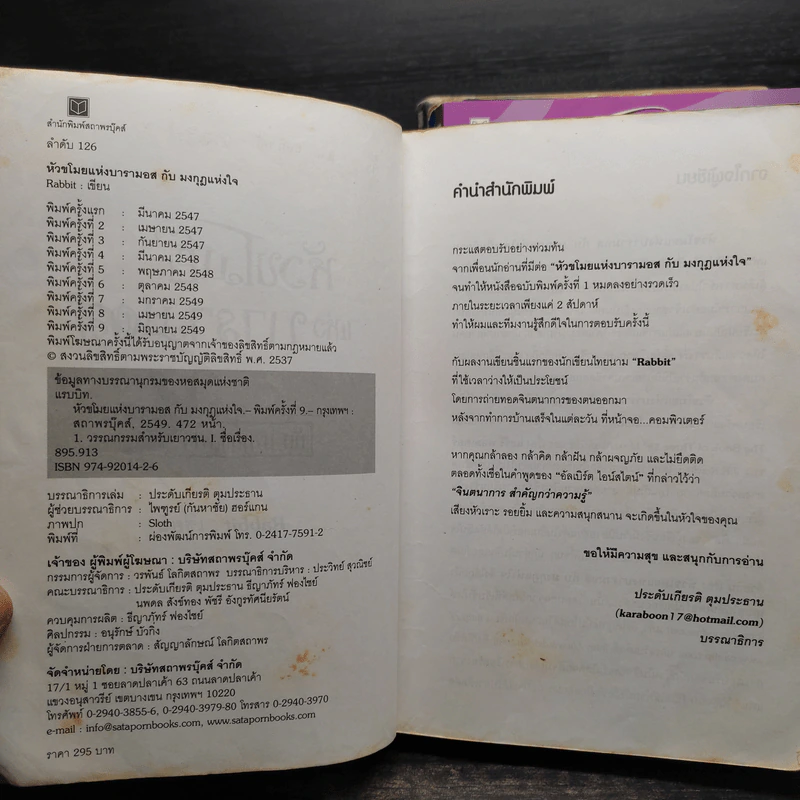 สำนักพิมพ์สถาพรบุ๊คส์
ลำดับ 126
หัวขโมยแห่งบารามอส กับ มงกุฎแห่งใจ
Rabbit : เขียน
พิมพ์ครั้งแรก : มีนาคม 2547
พิมพ์ครั้งที่ 2 : เมษายน 2547
พิมพ์ครั้งที่ 3 : กันยายน 2547
พิมพ์ครั้งที่ 4 : มีนาคม 2548
พิมพ์ครั้งที่ 5 : พฤษภาคม 2548
พิมพ์ครั้งที่ 6 : ตุลาคม 2548
พิมพ์ครั้งที่ 7 : มกราคม 2549
พิมพ์ครั้งที่ 8 : เมษายน 2549
พิมพ์ครั้งที่ 9 : มิถุนายน 2549
พิมพ์โฆษณาครั้งนี้ได้รับอนุญาตจากเจ้าของลิขสิทธิ์ตามกฎหมายแล้ว
© สงวนลิขสิทธิ์ตามพระราชบัญญัติลิขสิทธิ์ พ.ศ. 2537
ข้อมูลทางบรรณานุกรมของหอสมุดแห่งชาติ
แรบบิท.
หัวขโมยแห่งบารามอส กับ มงกุฎแห่งใจ.– พิมพ์ครั้งที่ 9.– กรุงเทพฯ :
สถาพรบุ๊คส์, 2549. 472 หน้า.
1. วรรณกรรมสำหรับเยาวชน. I. ชื่อเรื่อง.
895.913
ISBN 974-92014-2-6
บรรณาธิการเล่ม : ประดับเกียรติ ตุมประธาน
ผู้ช่วยบรรณาธิการ : ไพฑูรย์ (กันหาชัย) ฮอร์แกน
ภาพปก : Sloth
พิมพ์ที่ : ผ่องพัฒน์การพิมพ์ โทร. 0-2417-7591-2
เจ้าของ ผู้พิมพ์ผู้โฆษณา : บริษัทสถาพรบุ๊คส์ จำกัด
กรรมการผู้จัดการ : วรพันธ์ โลกิตสถาพร บรรณาธิการบริหาร : ประวิทย์ สุวณิชย์
คณะบรรณาธิการ : ประดับเกียรติ ตุมประธาน ธีญาภัทร์ ฟองไชย์
นพดล สังข์ทอง พัชรี อังกูรทัศนียรัตน์
ควบคุมการผลิต : ธีญาภัทร์ ฟองไชย์
ศิลปกรรม : อนุรักษ์ บัวกิ่ง
ผู้จัดการฝ่ายการตลาด : สัญญาลักษณ์ โลกิตสถาพร
จัดจำหน่ายโดย : บริษัทสถาพรบุ๊คส์ จำกัด
17/1 หมู่ 1 ซอยลาดปลาเค้า 63 ถนนลาดปลาเค้า
แขวงอนุสาวรีย์ เขตบางเขน กรุงเทพฯ 10220
โทรศัพท์ 0-2940-3855-6, 0-2940-3979-80 โทรสาร 0-2940-3970
e-mail : info@satapornbooks.com, www.satapornbooks.com
ราคา 295 บาท
คำนำสำนักพิมพ์
กระแสตอบรับอย่างท่วมท้น
จากเพื่อนนักอ่านที่มีต่อ “หัวขโมยแห่งบารามอส กับ มงกุฎแห่งใจ”
จนทำให้หนังสือฉบับพิมพ์ครั้งที่ 1 หมดลงอย่างรวดเร็ว
ภายในระยะเวลาเพียงแค่ 2 สัปดาห์
ทำให้ผมและทีมงานรู้สึกดีใจในการตอบรับครั้งนี้
กับผลงานเขียนชิ้นแรกของนักเขียนไทยนาม “Rabbit”
ที่ใช้เวลาว่างให้เป็นประโยชน์
โดยการถ่ายทอดจินตนาการของตนออกมา
หลังจากทำการบ้านเสร็จในแต่ละวัน ที่หน้าจอ...คอมพิวเตอร์
หากคุณกล้าลอง กล้าคิด กล้าฝัน กล้าผจญภัย และไม่ยึดติด
ตลอดทั้งเชื่อในคำพูดของ “อัลเบิร์ต ไอน์สไตน์” ที่กล่าวไว้ว่า
“จินตนาการ สำคัญกว่าความรู้”
เสียงหัวเราะ รอยยิ้ม และความสนุกสนาน จะเกิดขึ้นในหัวใจของคุณ
ขอให้มีความสุข และสนุกกับการอ่าน
ประดับเกียรติ ตุมประธาน
(karaboon17@hotmail.com)
บรรณาธิการ